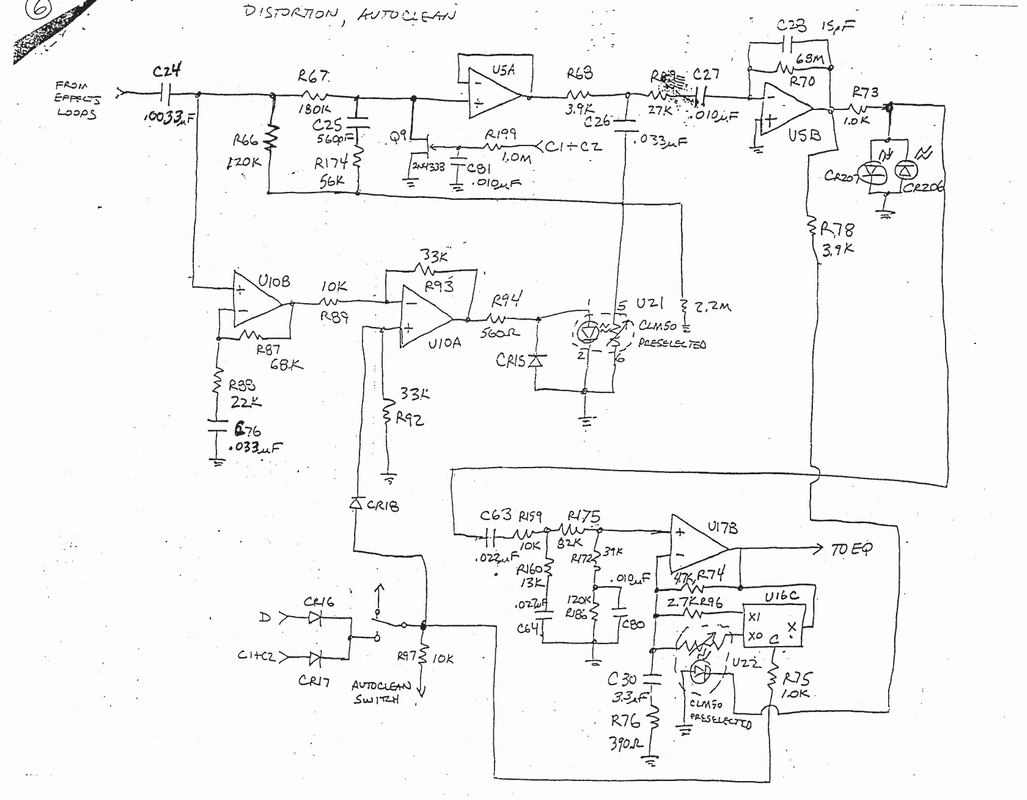 6
DISTORTION, AUTOCLEAN
FROM
EFFECTS
LOOPS
C24
.0033µF
R66
120K
R67
180K
C25
560pF
R174
56K
Q9
2N4333
C81
.010µF
R199
1.0M
C1+C2
U5A
-
+
R68
3.9K
C26
.033µF
27K
C27
.010µF
C23 15pF
68M
R70
-
+
U5B
R73
1.0K
CR207
CR206
R78
3.9K
+
-
U10B
R87
68K
R88
22K
C76
.033µF
10K
R89
33K
R93
-
+
U10A
33K
R92
R94
560Ω
CR15
1
2
5
6
U21
CLM50
PRESELECTED
2.2M
CR18
D
CR16
C1+C2
CR17
AUTOCLEAN
SWITCH
R97
10K
C63
.022µF
R159
10K
R175
82K
R160
13K
C64
R172
39K
120K
R186
.010µF
C80
+
-
U17B
TO EQ
47K R74
2.7K R96
U16C
X1
X0
X
C
U22
CLM50
PRESELECTED
C30
3.3µF
R76
390Ω
R75
1.0K